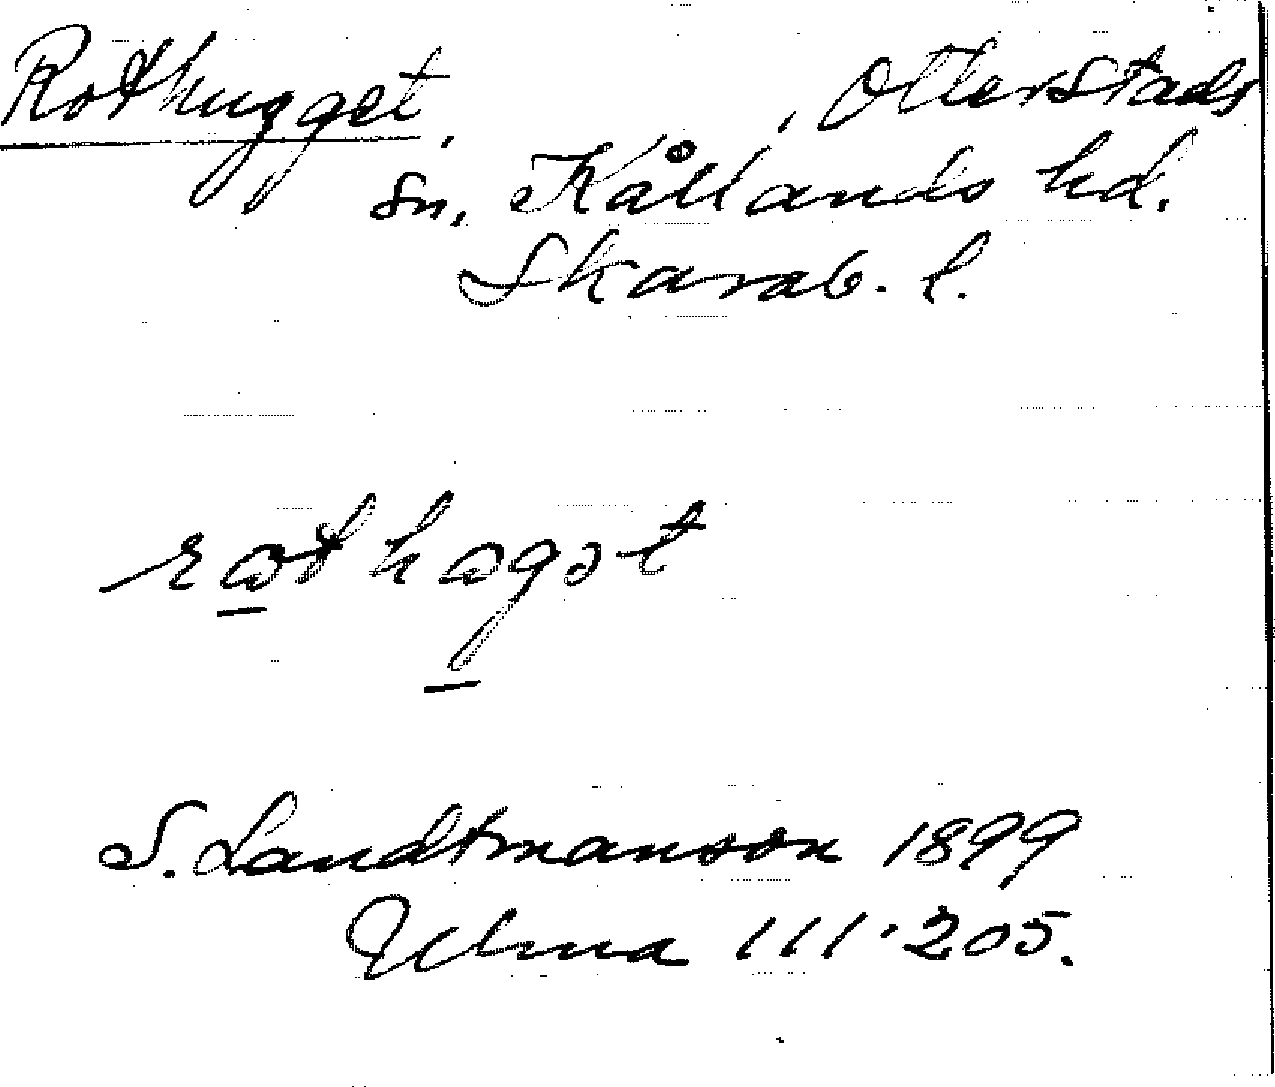 Rothugget, , Otterstads
sn, Kållands hd.
Skarab. l.
rothogət
S. Landtmanson 1899
Ulma 111:205.